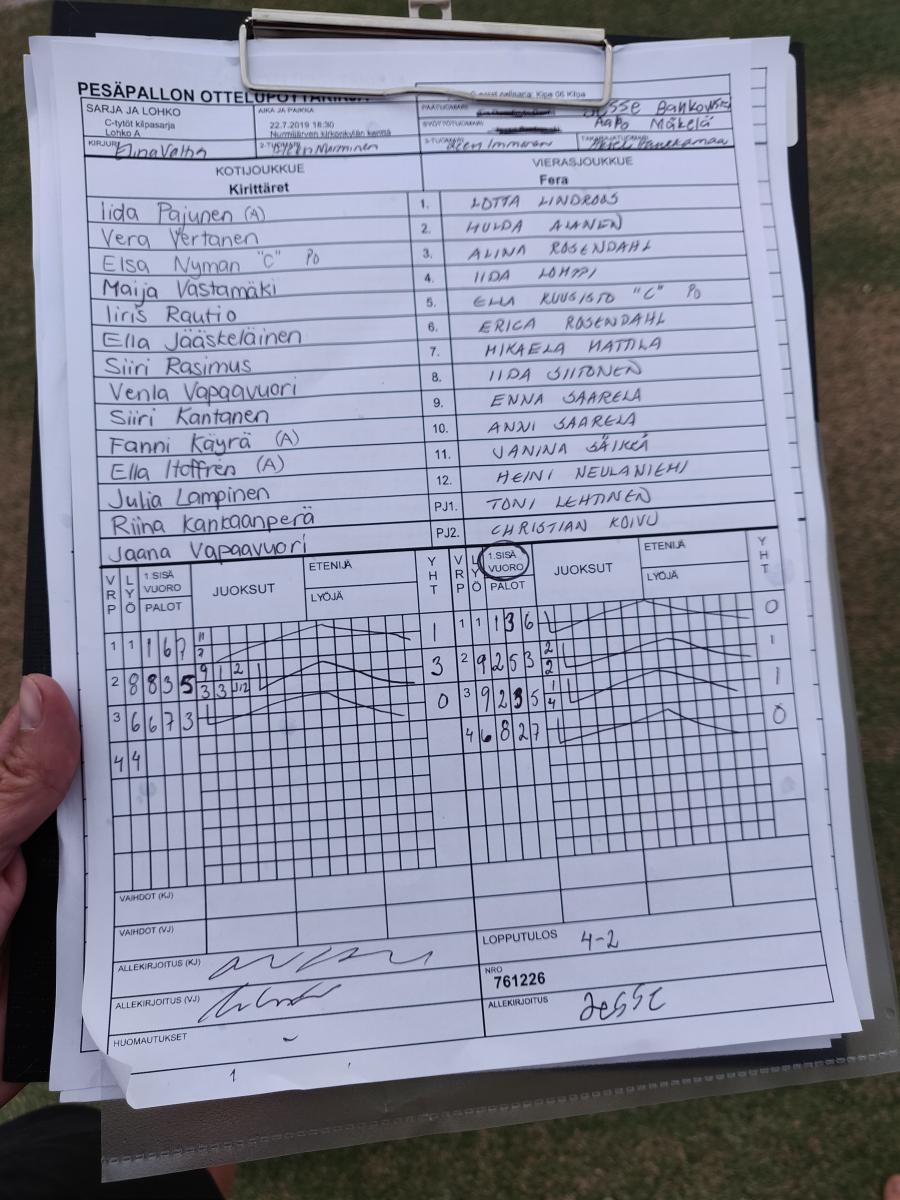 PESÄPALLON OTTELUPÖYTÄKIRJA
SARJA JA LOHKO
C-tytöt kilpasarja
Lohko A
AIKA JA PAIKKA
22.7.2019 18:30
Nurmijärven kirkonkylän kenttä
PÄÄTUOMARI
Jesse
SYÖTTÖTUOMARI
Aapo Mäkelä
KIRJURI Elina Valtia
2-TUOMARI Nurminen
3-TUOMARI Immonen
TAKARAJATUOMARI
KOTIJOUKKUE
Kirittäret
VIERASJOUKKUE
Fera
Iida Pajunen (A) 1. LOTTA LINDROOS
Vera Vertanen 2. HULDA ALANEN
Elsa Nyman "C" PO 3. ALINA ROSENDAHL
Maija Vastamäki 4. IIDA LOHPPI
Iiris Rautio 5. ELLA KUUSISTO "C" PO
Ella Jääskeläinen 6. ERICA ROSENDAHL
Siiri Rasimus 7. MIKAELA MATTILA
Venla Vapaavuori 8. IIDA SIITONEN
Siiri Kantanen 9. ENNA SAARELA
Fanni Käyrä (A) 10. ANNI SAARELA
Ella Itoffrén (A) 11. JANINA SÄIKKÄ
Julia Lampinen 12. HEINI NEULANIEMI
Riina Kankaanperä PJ1. TONI LEHTINEN
Jaana Vapaavuori PJ2. CHRISTIAN KOIVU
VRP LYÖ 1.SISÄ VUORO PALOT JUOKSUT ETENIJÄ LYÖJÄ YHT VRP LYÖ 1.SISÄ VUORO PALOT JUOKSUT ETENIJÄ LYÖJÄ YHT
1 1 1 6 7 11 2 1 1 1 1 3 6 0
2 8 8 3 5 9 1 2 3 3 J12 3 2 9 2 5 3 2 2 1
3 6 6 7 3 0 3 9 2 3 5 1 4 1
4 4 4 6 8 2 7 0
VAIHDOT (KJ)
VAIHDOT (VJ)
ALLEKIRJOITUS (KJ)
LOPPUTULOS 4-2
ALLEKIRJOITUS (VJ)
NRO
761226
HUOMAUTUKSET -
ALLEKIRJOITUS Jesse